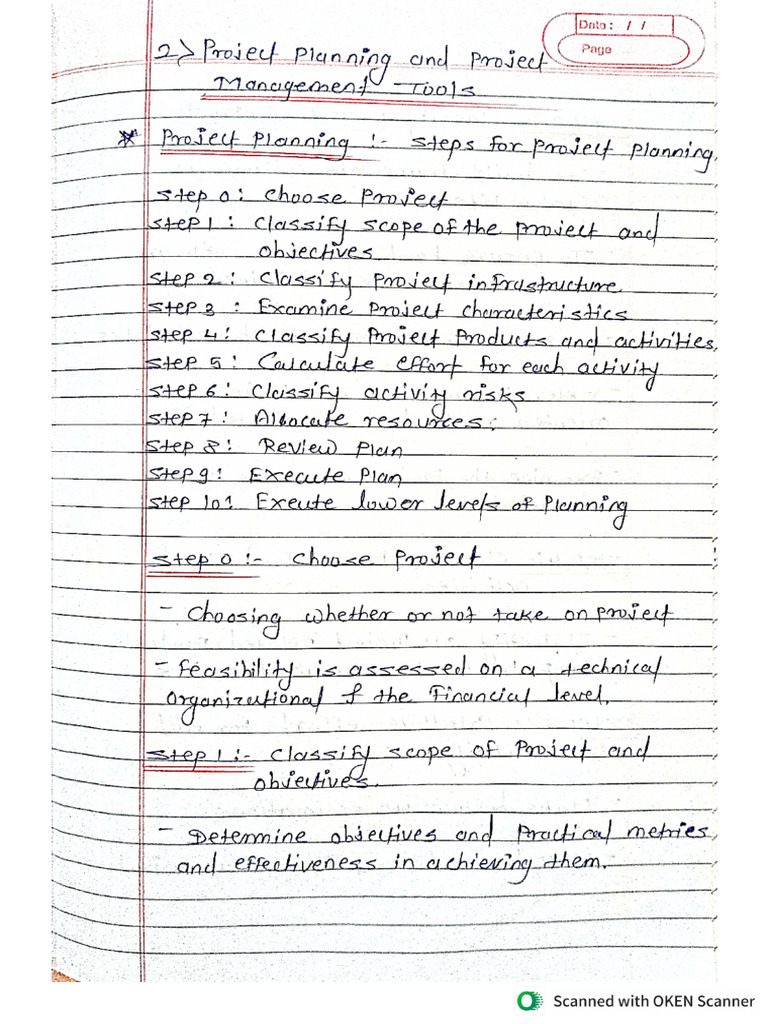 Date: / /
Page
2> Project Planning and Project
Management Tools
* Project Planning :- Steps for project planning.
Step 0: Choose Project
Step 1: Classify scope of the project and
objectives
Step 2: Classify Project infrastructure
Step 3: Examine Project characteristics
Step 4: Classify Project Products and activities,
Step 5: Calculate effort for each activity
Step 6: Classify activity risks
Step 7: Allocate resources:
Step 8: Review Plan
Step 9: Execute Plan
Step 10: Exeute lower levels of Planning
Step 0 :- Choose Project
- Choosing whether or not take on project
- Feasibility is assessed on a technical
Organizational & the Financial level.
Step 1 :- Classify scope of Project and
objectives.
- Determine objectives and Practical metries
and effectiveness in achieving them.
Scanned with OKEN Scanner